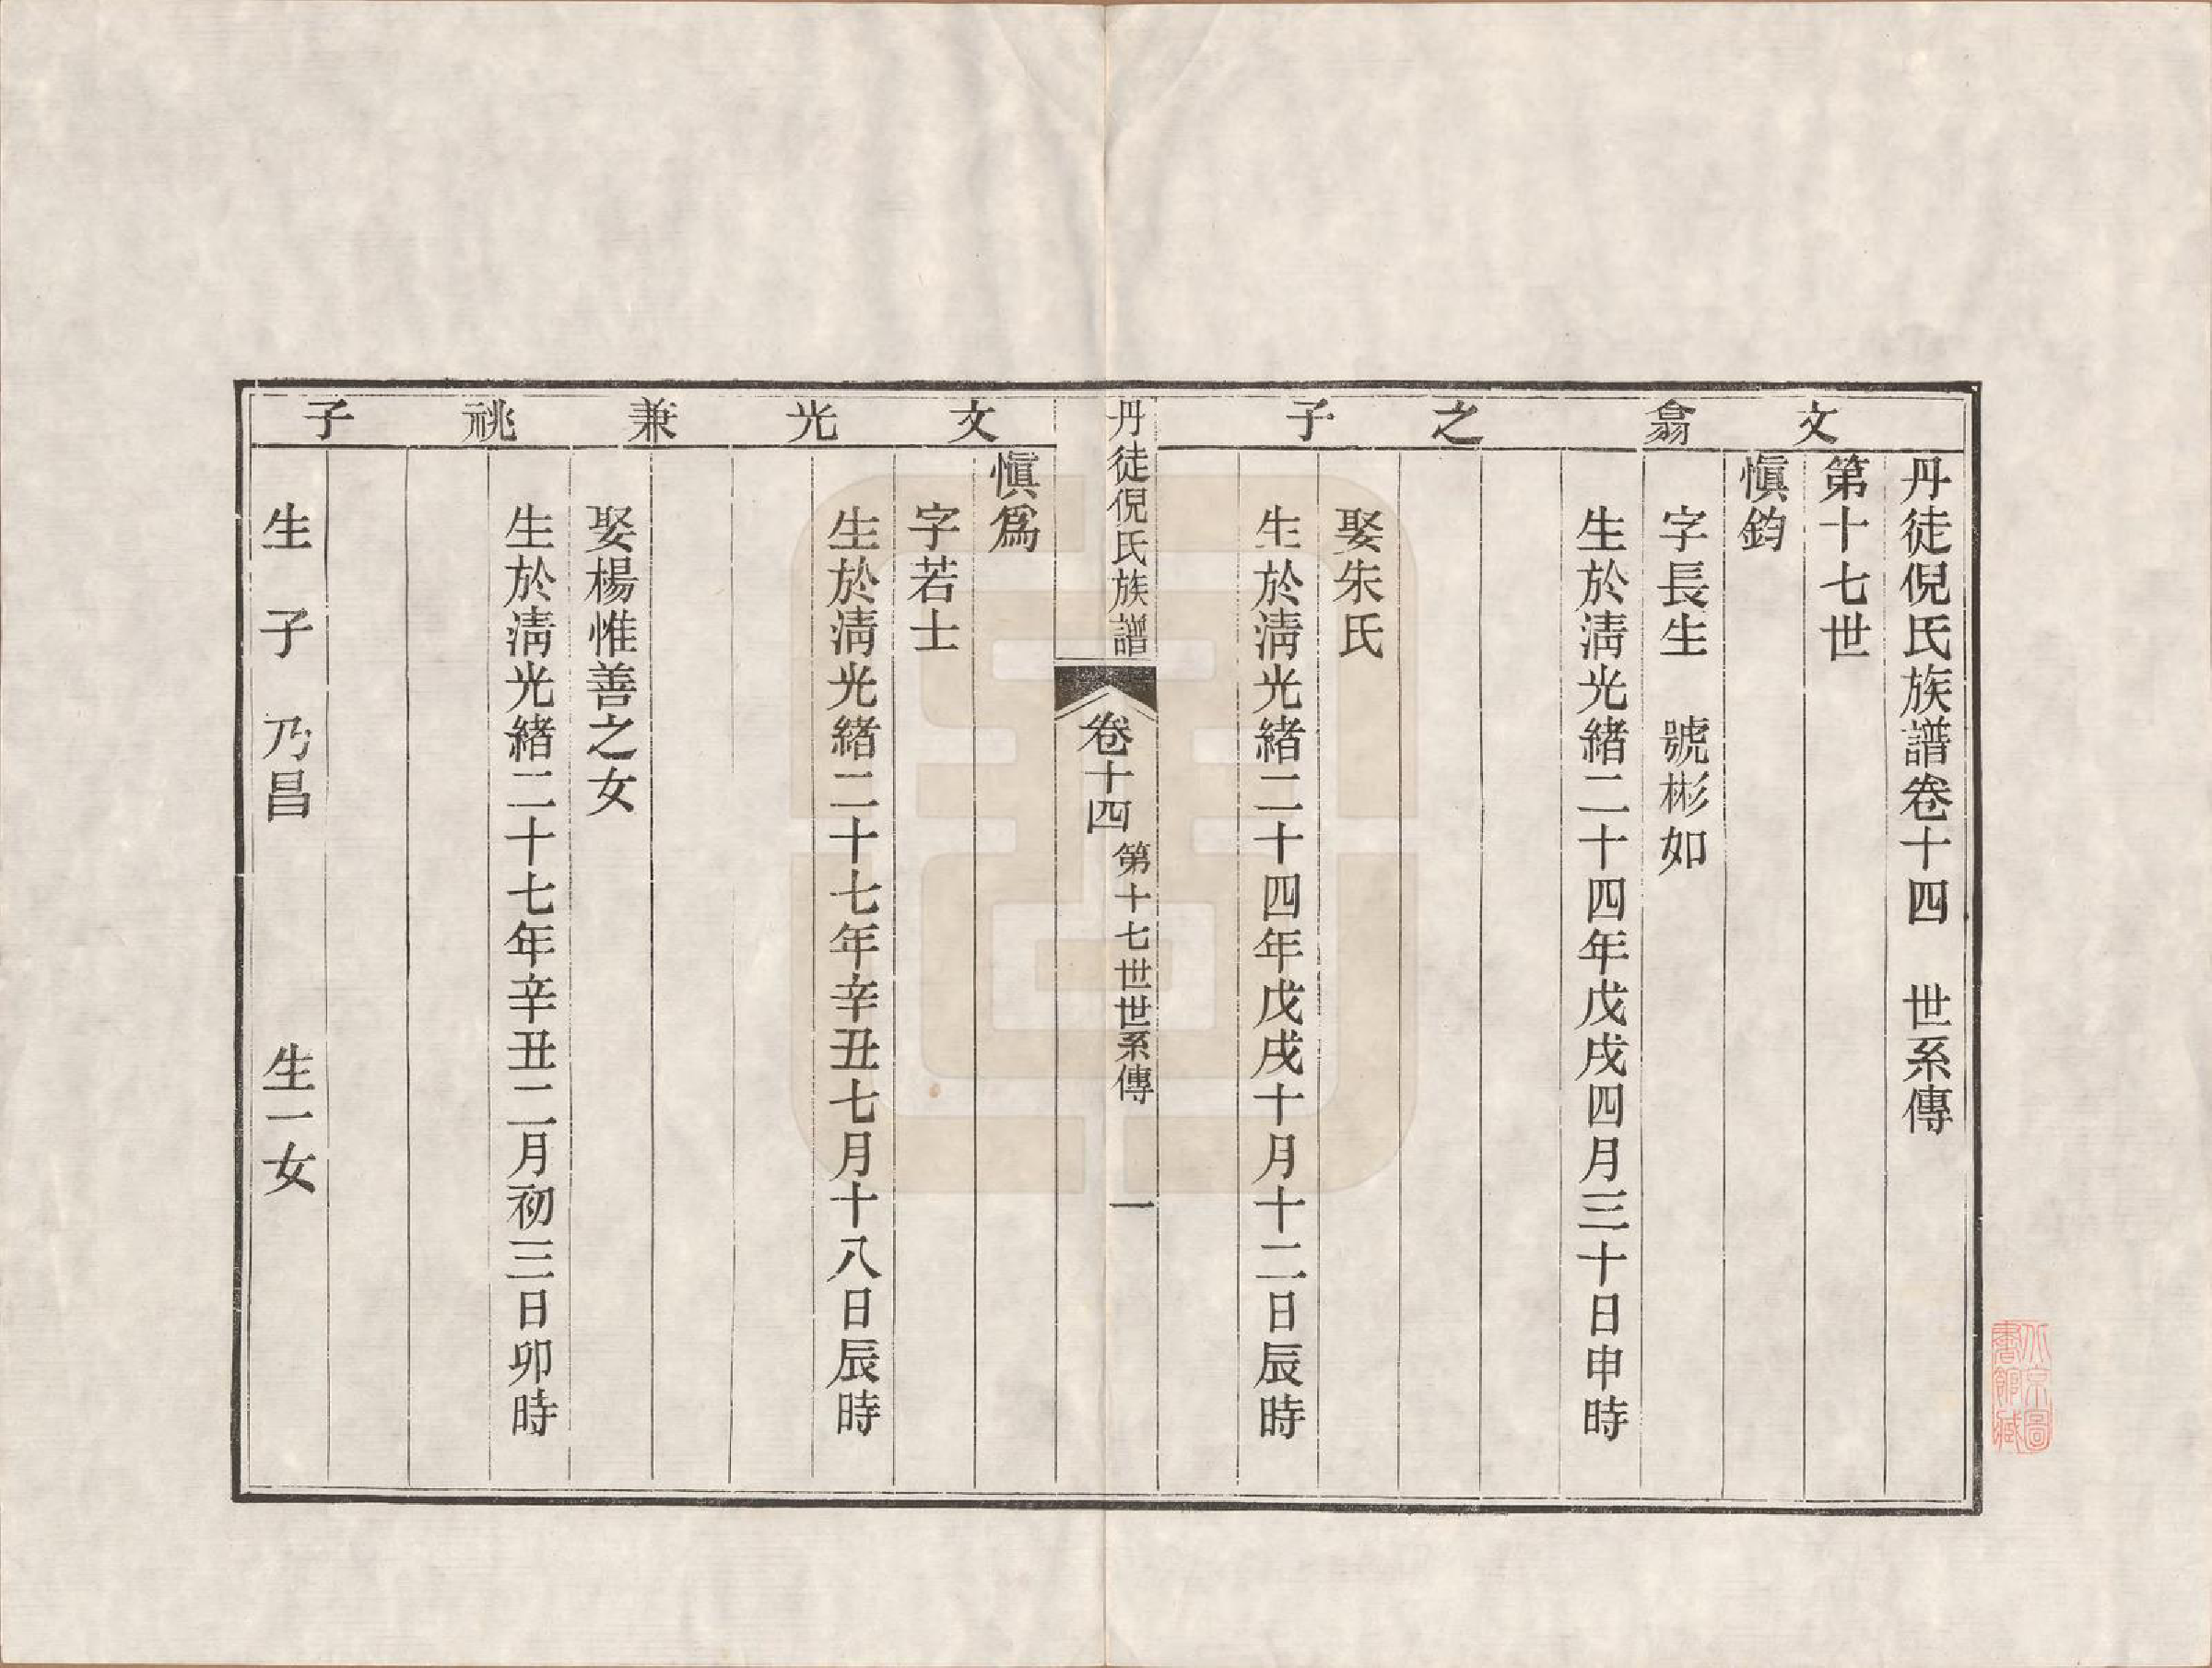 丹徒倪氏族譜卷十四　世系傳
第十七世
文翕之子
愼鈞
字長生　號彬如
生於淸光緒二十四年戊戌四月三十日申時
娶朱氏
生於淸光緒二十四年戊戌十月十二日辰時
丹徒倪氏族譜
卷十四
第十七世世系傳
一
文光兼祧子
愼爲
字若士
生於淸光緒二十七年辛丑七月十八日辰時
娶楊惟善之女
生於淸光緒二十七年辛丑二月初三日卯時
生　子　乃昌　　　　生一女
北京圖書館藏